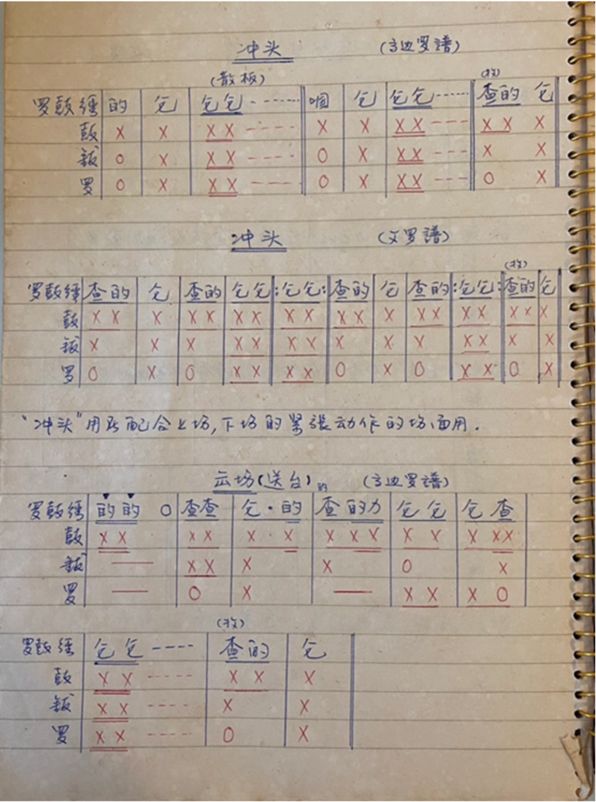 冲头 (高边罗谱)
(散板) (收)
罗鼓经 的 仓 仓仓 ----- 咽 仓 仓仓 ----- 查的 仓
鼓 X X XX ---- X X XX ---- XX X
钹 O X XX --- O X XX --- X X
罗 O X XX --- O X XX --- O X
冲头 (文罗谱)
(收)
罗鼓经 查的 仓 查的 仓仓 :仓仓: 查的 仓 查的 :仓仓: 查的 仓
鼓 XX X XX XX XX XX X XX XX XX X
钹 X X X XX XX X X X XX X X
罗 O X O XX XX O X O XX O X
"冲头"用于配合上场,下场的紧张动作的场面用.
云场(送台)的 (高边罗谱)
罗鼓经 的的 O 查查 仓·的 查的力 仓仓 仓查
鼓 XX XX X·X XXX XX XXX
钹 — XX X X O X
罗 — O X — XX XO
(收)
罗鼓经 仓仓 ---- 查的 仓
鼓 XX ---- XX X
钹 XX ---- X X
罗 XX ---- O X